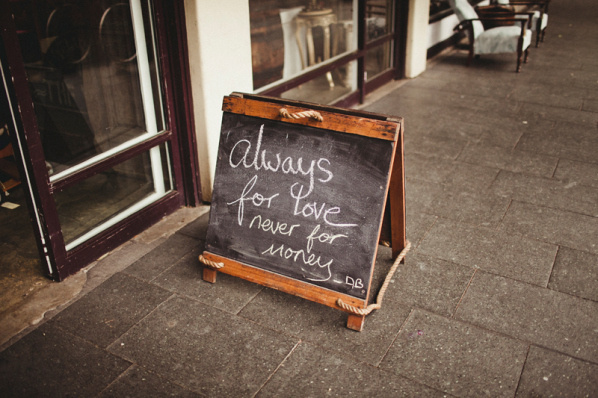 always
for love
never for
money
_DB